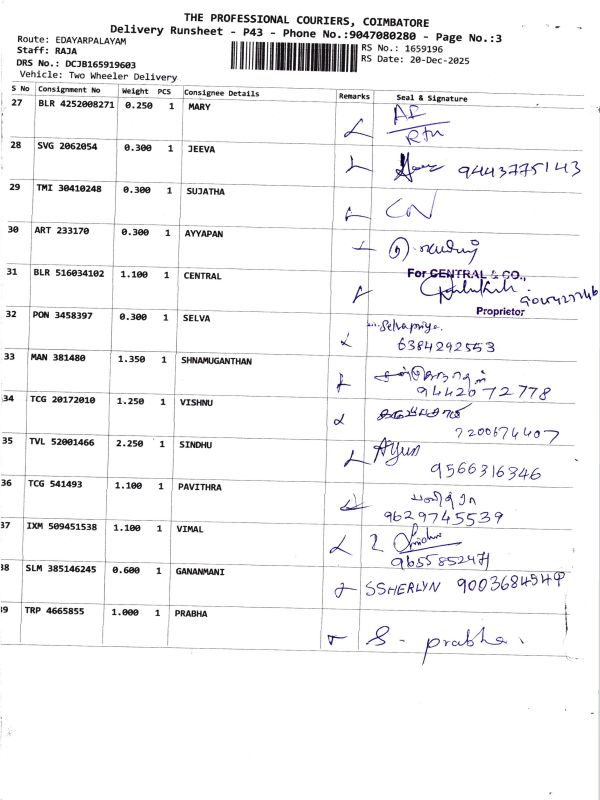 THE PROFESSIONAL COURIERS, COIMBATORE
Delivery Runsheet - P43 - Phone No.:9047080280 - Page No.:3
Route: EDAYARPALAYAM
RS No.: 1659196
Staff: RAJA
RS Date: 20-Dec-2025
DRS No.: DCJB165919603
Vehicle: Two Wheeler Delivery
S No Consignment No Weight PCS Consignee Details Remarks Seal & Signature
27 BLR 4252008271 0.250 1 MARY
Rtn
28 SVG 2062054 0.300 1 JEEVA 9443775143
29 TMI 30410248 0.300 1 SUJATHA CN
30 ART 233170 0.300 1 AYYAPAN
31 BLR 516034102 1.100 1 CENTRAL For CENTRAL & CO.,
Proprietor
32 PON 3458397 0.300 1 SELVA Selvapriya.
6384292553
33 MAN 381480 1.350 1 SHNAMUGANTHAN
9442072778
34 TCG 20172010 1.250 1 VISHNU
7200674407
35 TVL 52001466 2.250 1 SINDHU
9566316346
36 TCG 541493 1.100 1 PAVITHRA பவித்ரா
9629745539
37 IXM 509451538 1.100 1 VIMAL
38 SLM 385146245 0.600 1 GANANMANI SSHERLYN
39 TRP 4665855 1.000 1 PRABHA S - prabha.